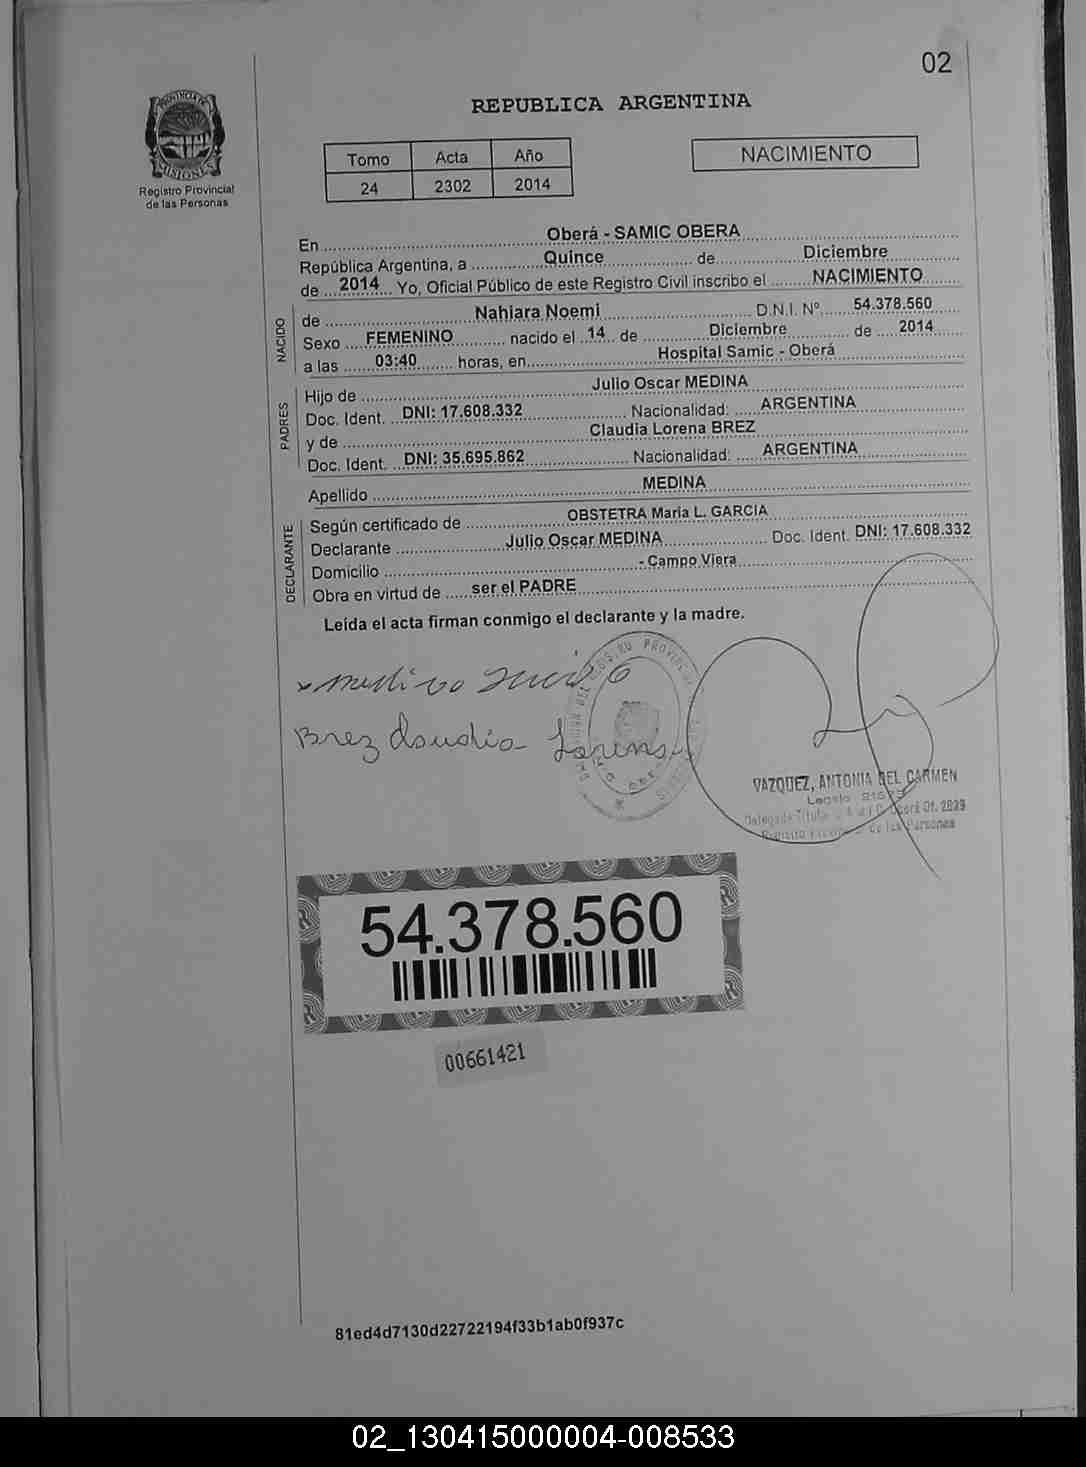 02
REPUBLICA ARGENTINA
PROVINCIA DE
MISIONES
Registro Provincial
de las Personas
Tomo Acta Año
24 2302 2014
NACIMIENTO
En Oberá - SAMIC OBERA
República Argentina, a Quince de Diciembre
de 2014 Yo, Oficial Público de este Registro Civil inscribo el NACIMIENTO
NACIDO
de Nahiara Noemi D.N.I. Nº 54.378.560
Sexo FEMENINO nacido el 14 de Diciembre de 2014
a las 03:40 horas, en Hospital Samic - Oberá
PADRES
Hijo de Julio Oscar MEDINA
Doc. Ident. DNI: 17.608.332 Nacionalidad: ARGENTINA
y de Claudia Lorena BREZ
Doc. Ident. DNI: 35.695.862 Nacionalidad: ARGENTINA
Apellido MEDINA
DECLARANTE
Según certificado de OBSTETRA Maria L. GARCIA
Declarante Julio Oscar MEDINA Doc. Ident. DNI: 17.608.332
Domicilio - Campo Viera
Obra en virtud de ser el PADRE
Leída el acta firman conmigo el declarante y la madre.
Brez Claudia Lorena
VAZQUEZ, ANTONIA DEL CARMEN
de las Personas
54.378.560
00661421
81ed4d7130d22722194f33b1ab0f937c
02_130415000004-008533